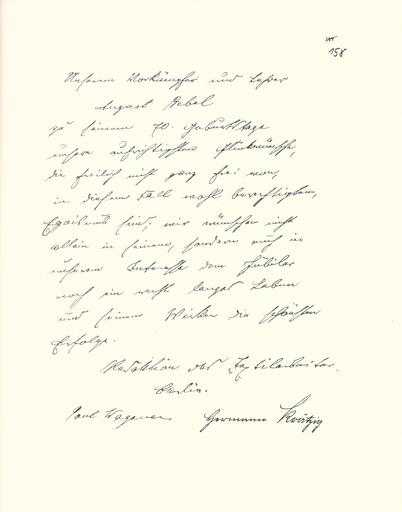 158
Unserm Vorkämpfer und Lehrer
August Bebel
zu seinem 70. Geburtstage
unsere aufrichtigsten Glückwünsche,
die freilich nicht ganz frei von,
in diesem Fall wohl berechtigtem,
Egoismus sind; wir wünschen nicht
allein in seinem, sondern auch in
unserem Interesse dem Jubilar
noch ein recht langes Leben
und seinem Wirken die schönsten
Erfolge.
Redaktion des Textilarbeiter.
Berlin.
Paul Wagener Hermann Krätzig